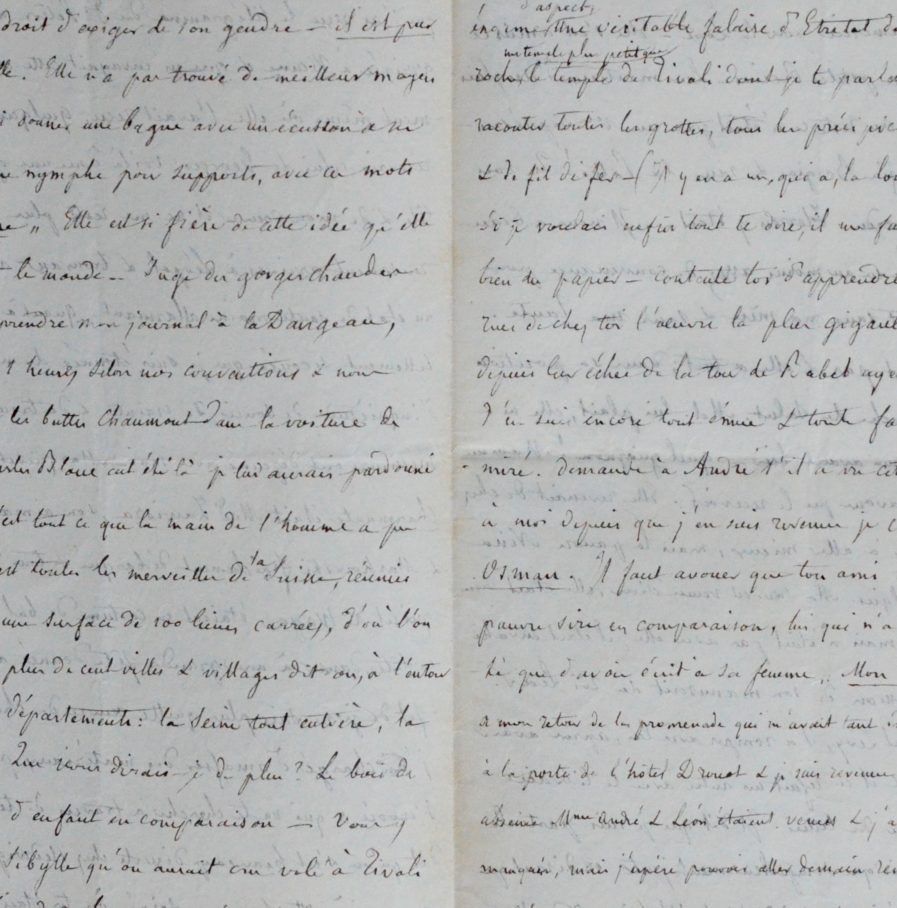 droit d'exiger de son gendre — il est pur
Elle n'a pas trouvé de meilleur moyen
donner une bague avec un écusson à
nymphe pour supports, avec ces mots
Elle est si fière de cette idée qu'elle
le monde — Juge des gorges chaudes
prendre mon journal à la Dangeau,
heures selon nos conventions & nous
les buttes Chaumont dans la voiture de
Blanc eut été là je lui aurais pardonné
c'est tout ce que la main de l'homme a pu
est toutes les merveilles de la Suisse, réunies
une surface de 100 lieues carrées, d'où l'on
plus de cent villes & villages dit on, à l'entour
départements : la Seine tout entière, la
Que vous dirais-je de plus ? Le bois de
d'enfant en comparaison — Vous y
Sibylle qu'on aurait cru volé à Tivoli
d'aspect,
une véritable falaise d'Etretat
naturelle plus petit que
le temple de Tivoli dont je te parlais
raconter toutes les grottes, tous les préci
& de fil de fer — il y en a un, qui a, la
Si je voulais enfin tout te dire, il me
bien du papier — contente toi d'apprendre
de chez toi l'oeuvre la plus
depuis leur échec de la tour de Babel
J'en suis encore tout émue & toute
demande à André s'il a vu
à moi depuis que j'en suis revenue je
Osman. Il faut avouer que ton ami
pauvre sire en comparaison, lui qui n'a
que d'avoir écrit à sa femme „ Mon
à mon retour de la promenade qui m'avait tant
à la porte de l'hôtel Drouot & je suis revenue
Mme André & Léon étaient venus & j'
manqués, mais j'espère pouvoir aller demain